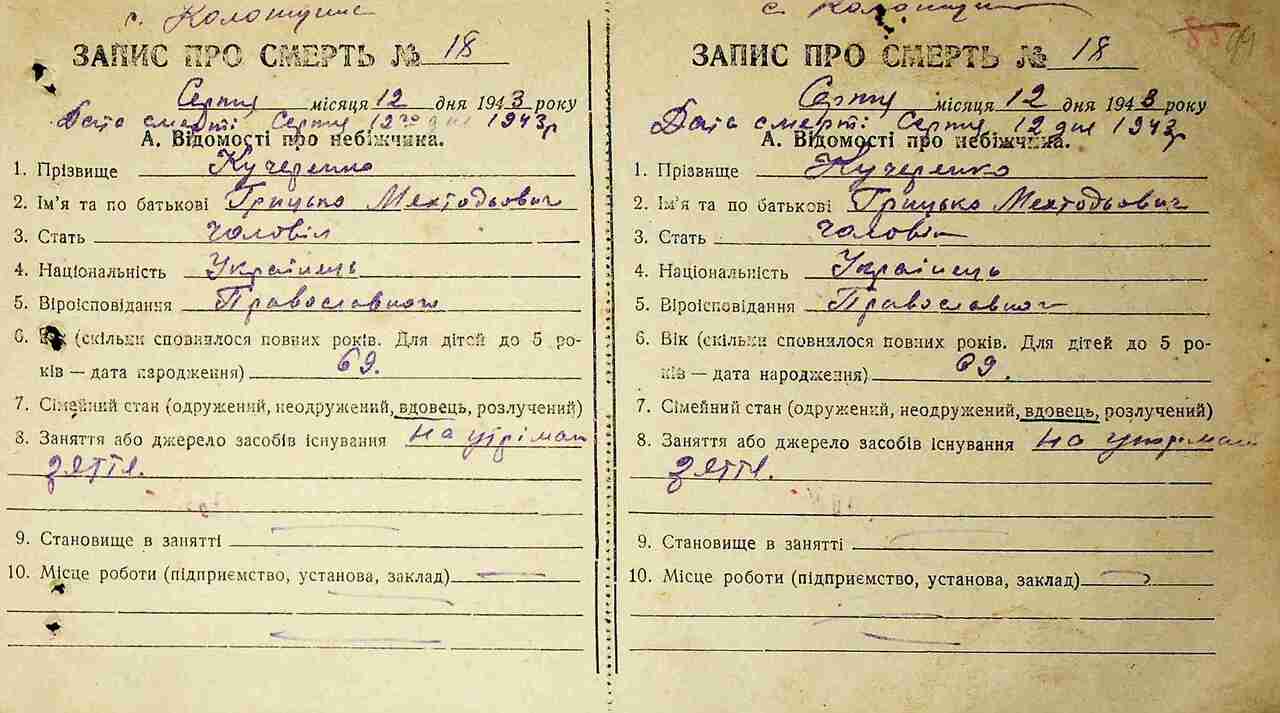 с.
ЗАПИС ПРО СМЕРТЬ № 18
Серпня місяця 12 дня 1943 року
Дата смерті: Серпня 12го дня 1943 р
А. Відомості про небіжчика.
1. Прізвище Кучеренко
2. Ім'я та по батькові Грицько Мехтодьович
3. Стать чоловік
4. Національність Українець
5. Віроісповідання Православного
6. Вік (скільки сповнилося повних років. Для дітей до 5 ро-
ків — дата народження) 69.
7. Сімейний стан (одружений, неодружений, вдовець, розлучений)
8. Заняття або джерело засобів існування на утріман
зяття.
9. Становище в занятті
10. Місце роботи (підприємство, установа, заклад)
с.
ЗАПИС ПРО СМЕРТЬ № 18
Серпня місяця 12 дня 1943 року
Дата смерті: Серпня 12 дня 1943 р
А. Відомості про небіжчика.
1. Прізвище Кучеренко
2. Ім'я та по батькові Грицько Мехтодьович
3. Стать чоловік
4. Національність Українець
5. Віроісповідання Православного
6. Вік (скільки сповнилося повних років. Для дітей до 5 ро-
ків — дата народження) 69.
7. Сімейний стан (одружений, неодружений, вдовець, розлучений)
8. Заняття або джерело засобів існування на
зяття.
9. Становище в занятті
10. Місце роботи (підприємство, установа, заклад)